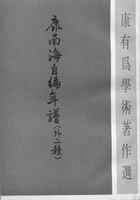 康有為學術著作選
康南海自編年譜(外二種)